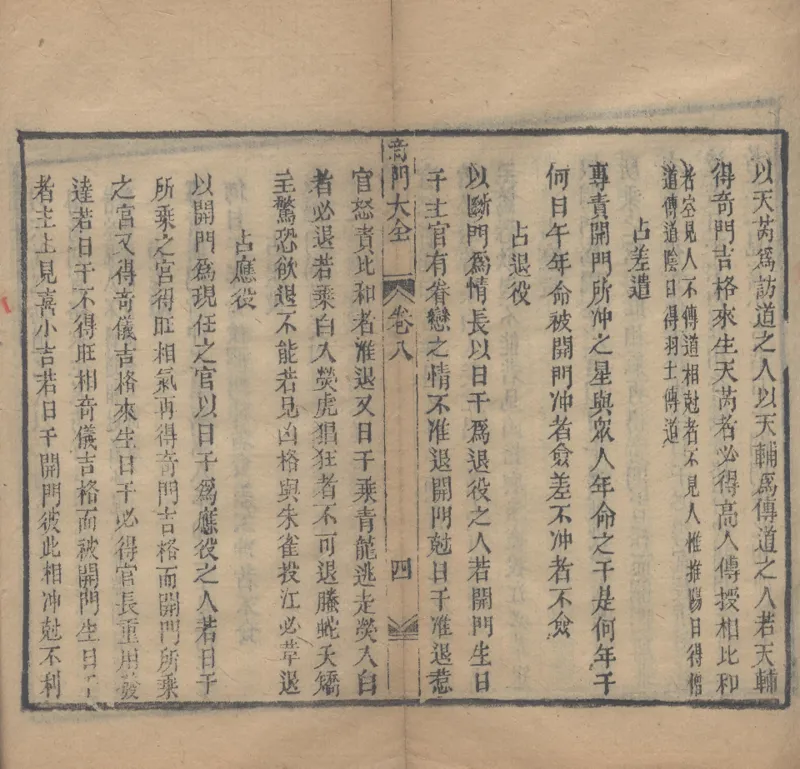 以天芮爲訪道之人以天輔爲傳道之人若天輔
得奇門吉格來生天芮者必得高人傳授相比和
者空見人不傳道相尅者不見人惟推陽日得僧
道傳道陰日得羽士傳道
占差遣
專責開門所冲之星與眾人年命之干是何年干
何日午年命被開門冲者僉差不冲者不僉
占退役
以斷門爲情長以日干爲退役之人若開門生日
干主官有眷戀之情不准退開門尅日干准退惹
奇門大全 卷八 四
官怒責比和者准退又日干乘青龍逃走熒入白
者必退若乘白入熒虎猖狂者不可退螣蛇夭矯
主驚恐欲退不能若見凶格與朱雀投江必革退
占應役
以開門爲現任之官以日干爲應役之人若日干
所乘之宮得旺相氣再得奇門吉格而開門所乘
之宮又得奇儀吉格來生日干必得官長重用發
達若日干不得旺相奇儀吉格而被開門生日干
者主上見喜小吉若日干開門彼此相冲尅不利